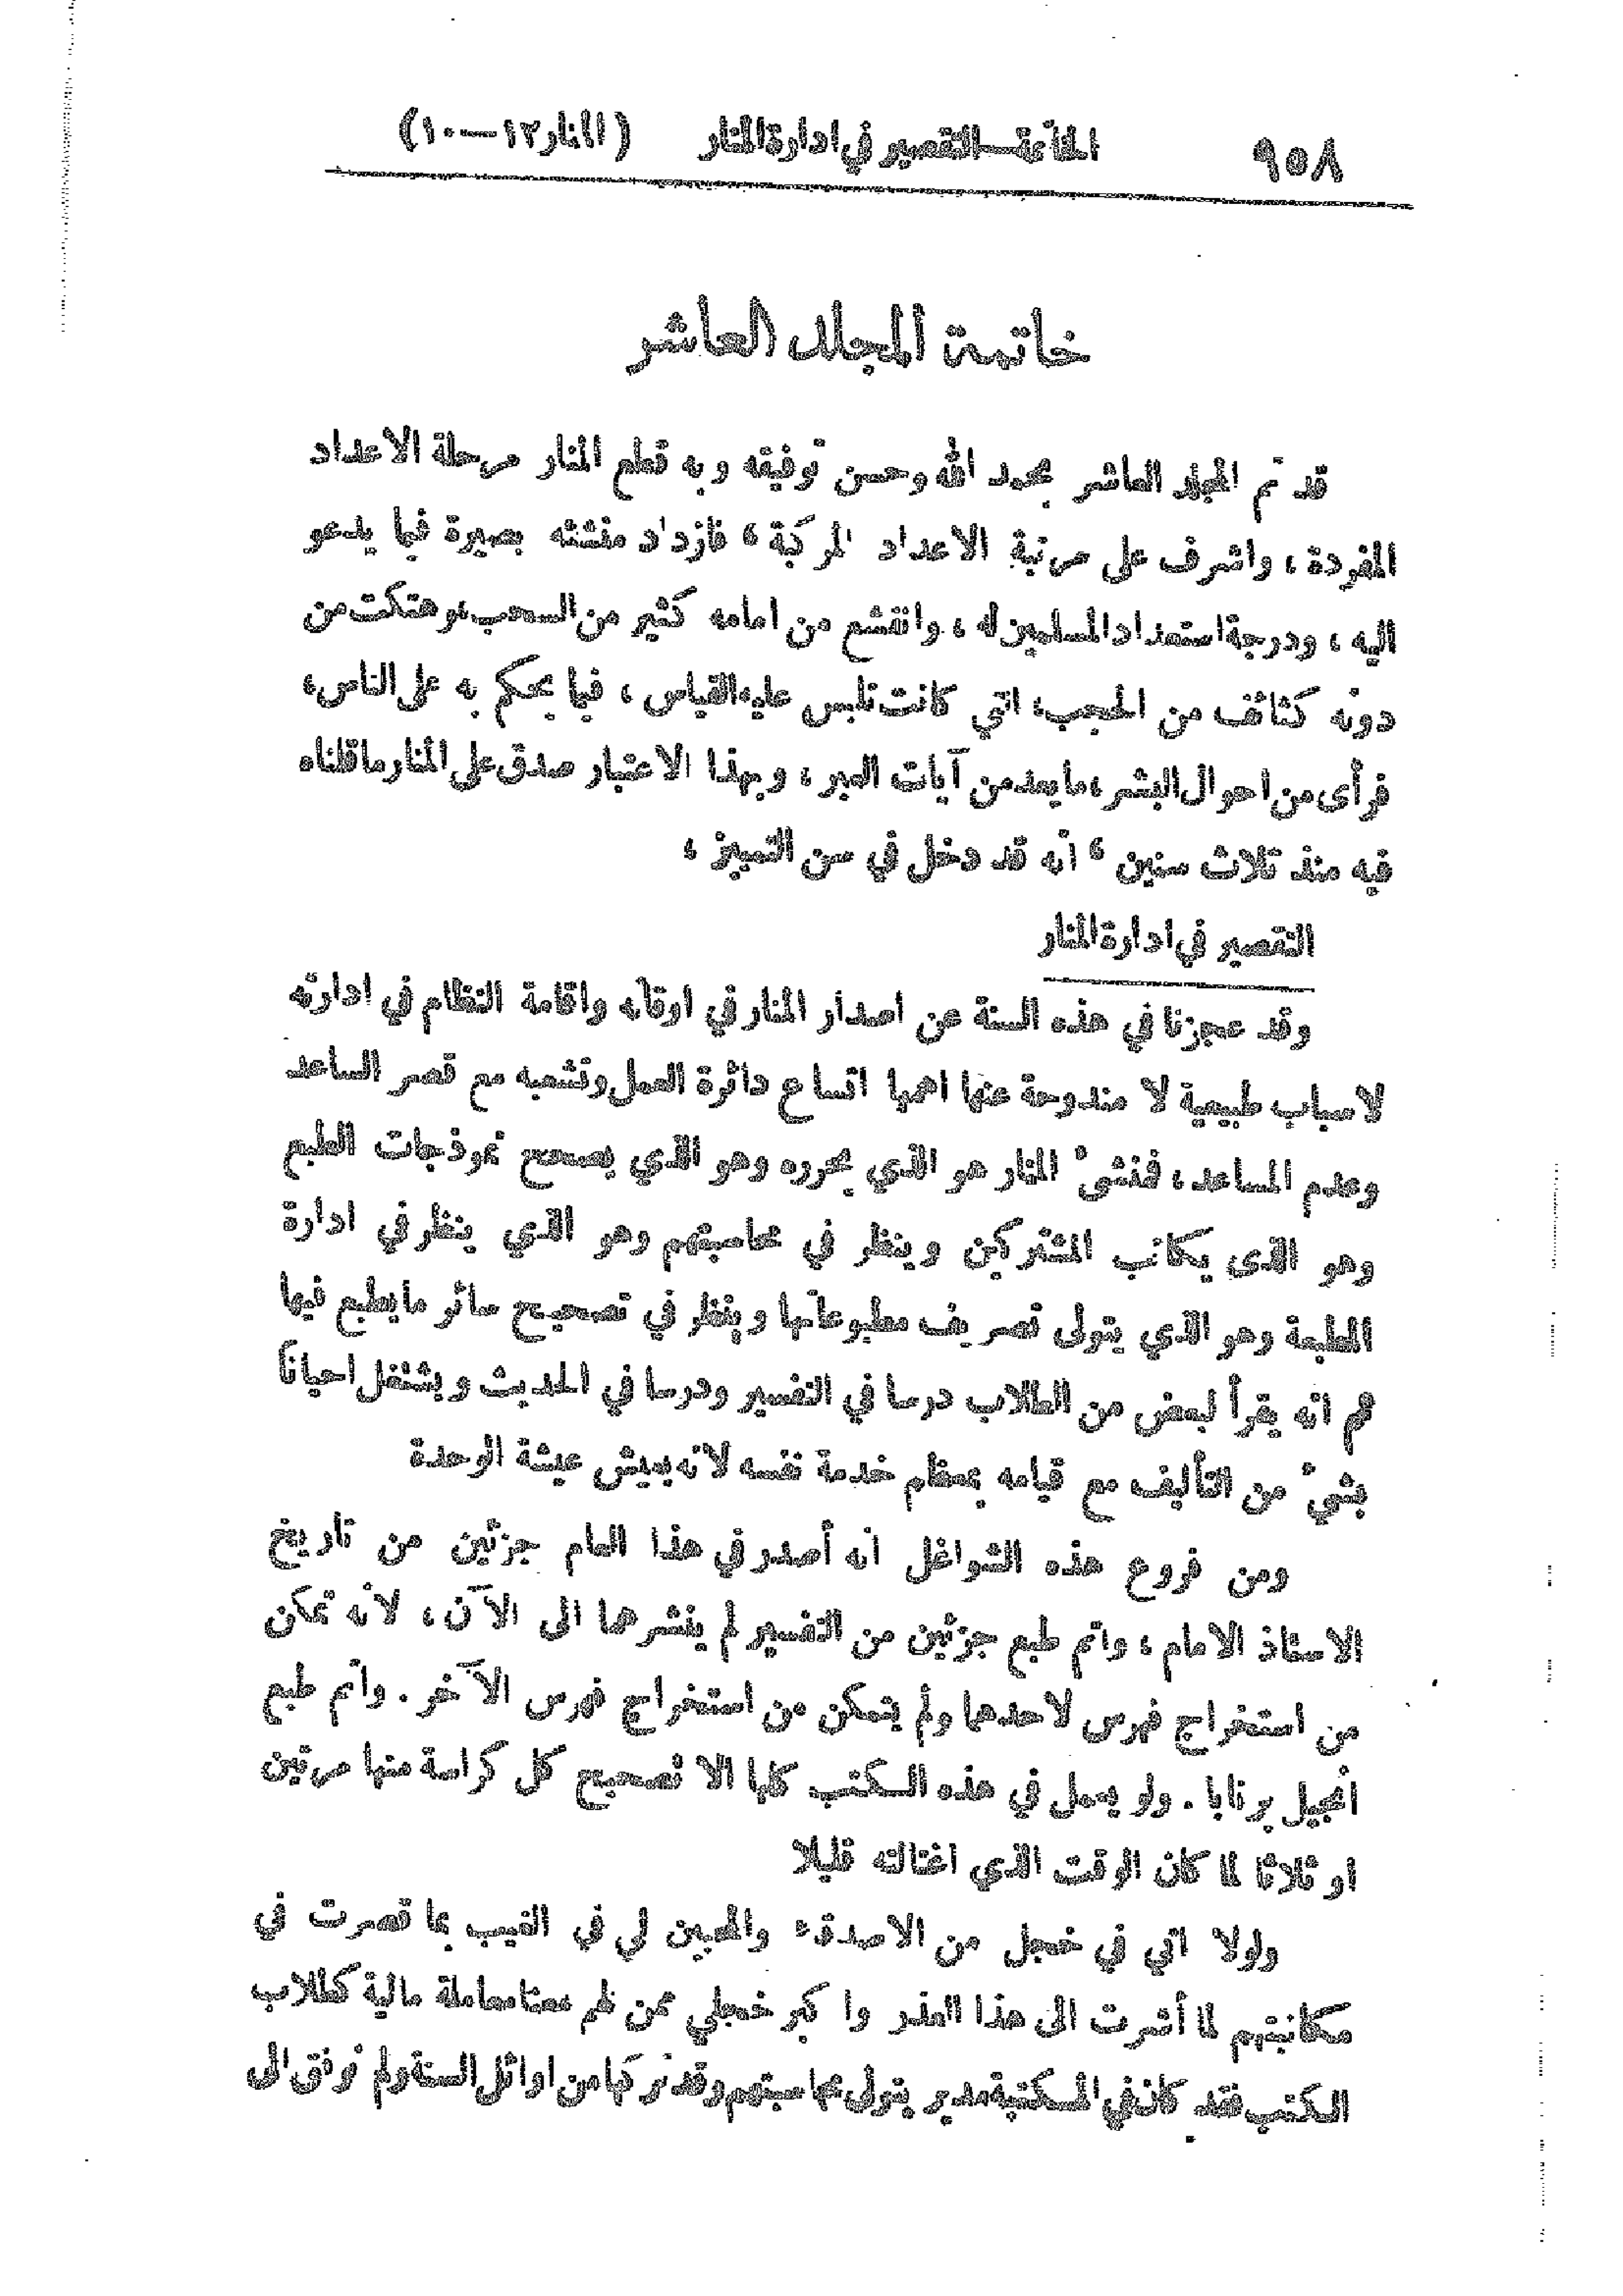 ٩٥٨ الخاتمة—التقصير في ادارة المنار (المنار١٢—١٠)
خاتمة المجلد العاشر
قد تم المجلد العاشر بحمد الله وحسن توفيقه وبه قطع المنار مرحلة الاعداد
المفردة ، واشرف على مرتبة الاعداد المركبة ، فازداد منشئه بصيرة فيما يدعو
اليه ، ودرجة استعداد المسلمين له ، وانقشع من امامه كثير من السحب، وهتكت من
دونه كثائف من الحجب، التي كانت تلبس عليه القياس ، فيما يحكم به على الناس،
فرأى من احوال البشر ، ما يعد من آيات العبر ، وبهذا الاعتبار صدق على المنار ما قلناه
فيه منذ ثلاث سنين ، أنه قد دخل في سن التمييز ،
التقصير في ادارة المنار
وقد عجزنا في هذه السنة عن اصدار المنار في اوقاته واقامة النظام في ادارته
لاسباب طبيعية لا مندوحة عنها اهمها اتساع دائرة العمل وتشعبه مع قصر الساعد
وعدم المساعد ، فمنشئ المنار هو الذي يحرره وهو الذي يصحح نموذجات الطبع
وهو الذى يكاتب المشتركين وينظر في محاسبتهم وهو الذي ينظر في ادارة
المطبعة وهو الذي يتولى تصريف مطبوعاتها وينظر في تصحيح سائر ما يطبع فيها
ثم انه يقرأ لبعض من الطلاب درسا في التفسير ودرسا في الحديث ويشتغل احياناً
بشيء من التأليف مع قيامه بمعظم خدمة نفسه لانه يعيش عيشة الوحدة
ومن فروع هذه الشواغل انه أصدر في هذا العام جزئين من تاريخ
الاستاذ الامام ، واتم طبع جزئين من التفسير لم ينشرهما الى الآن ، لأنه تمكن
من استخراج فهرس لاحدهما ولم يتمكن من استخراج فهرس الآخر . واتم طبع
أنجيل برنابا . ولو يعمل في هذه الكتب كلها الا تصحيح كل كراسة منها مرتين
او ثلاثا لما كان الوقت الذي اغتالته قليلا
ولولا اني في خجل من الاصدقاء والمحبين لي في الغيب بما قصرت في
مكاتبتهم لما أشرت الى هذا العذر وا كبر خجلي ممن لهم معنا معاملة مالية كطلاب
الكتب فقد كان في المكتبة مدير يتولى محاسبتهم وقد تركها من اوائل السنة ولم نوفق الى